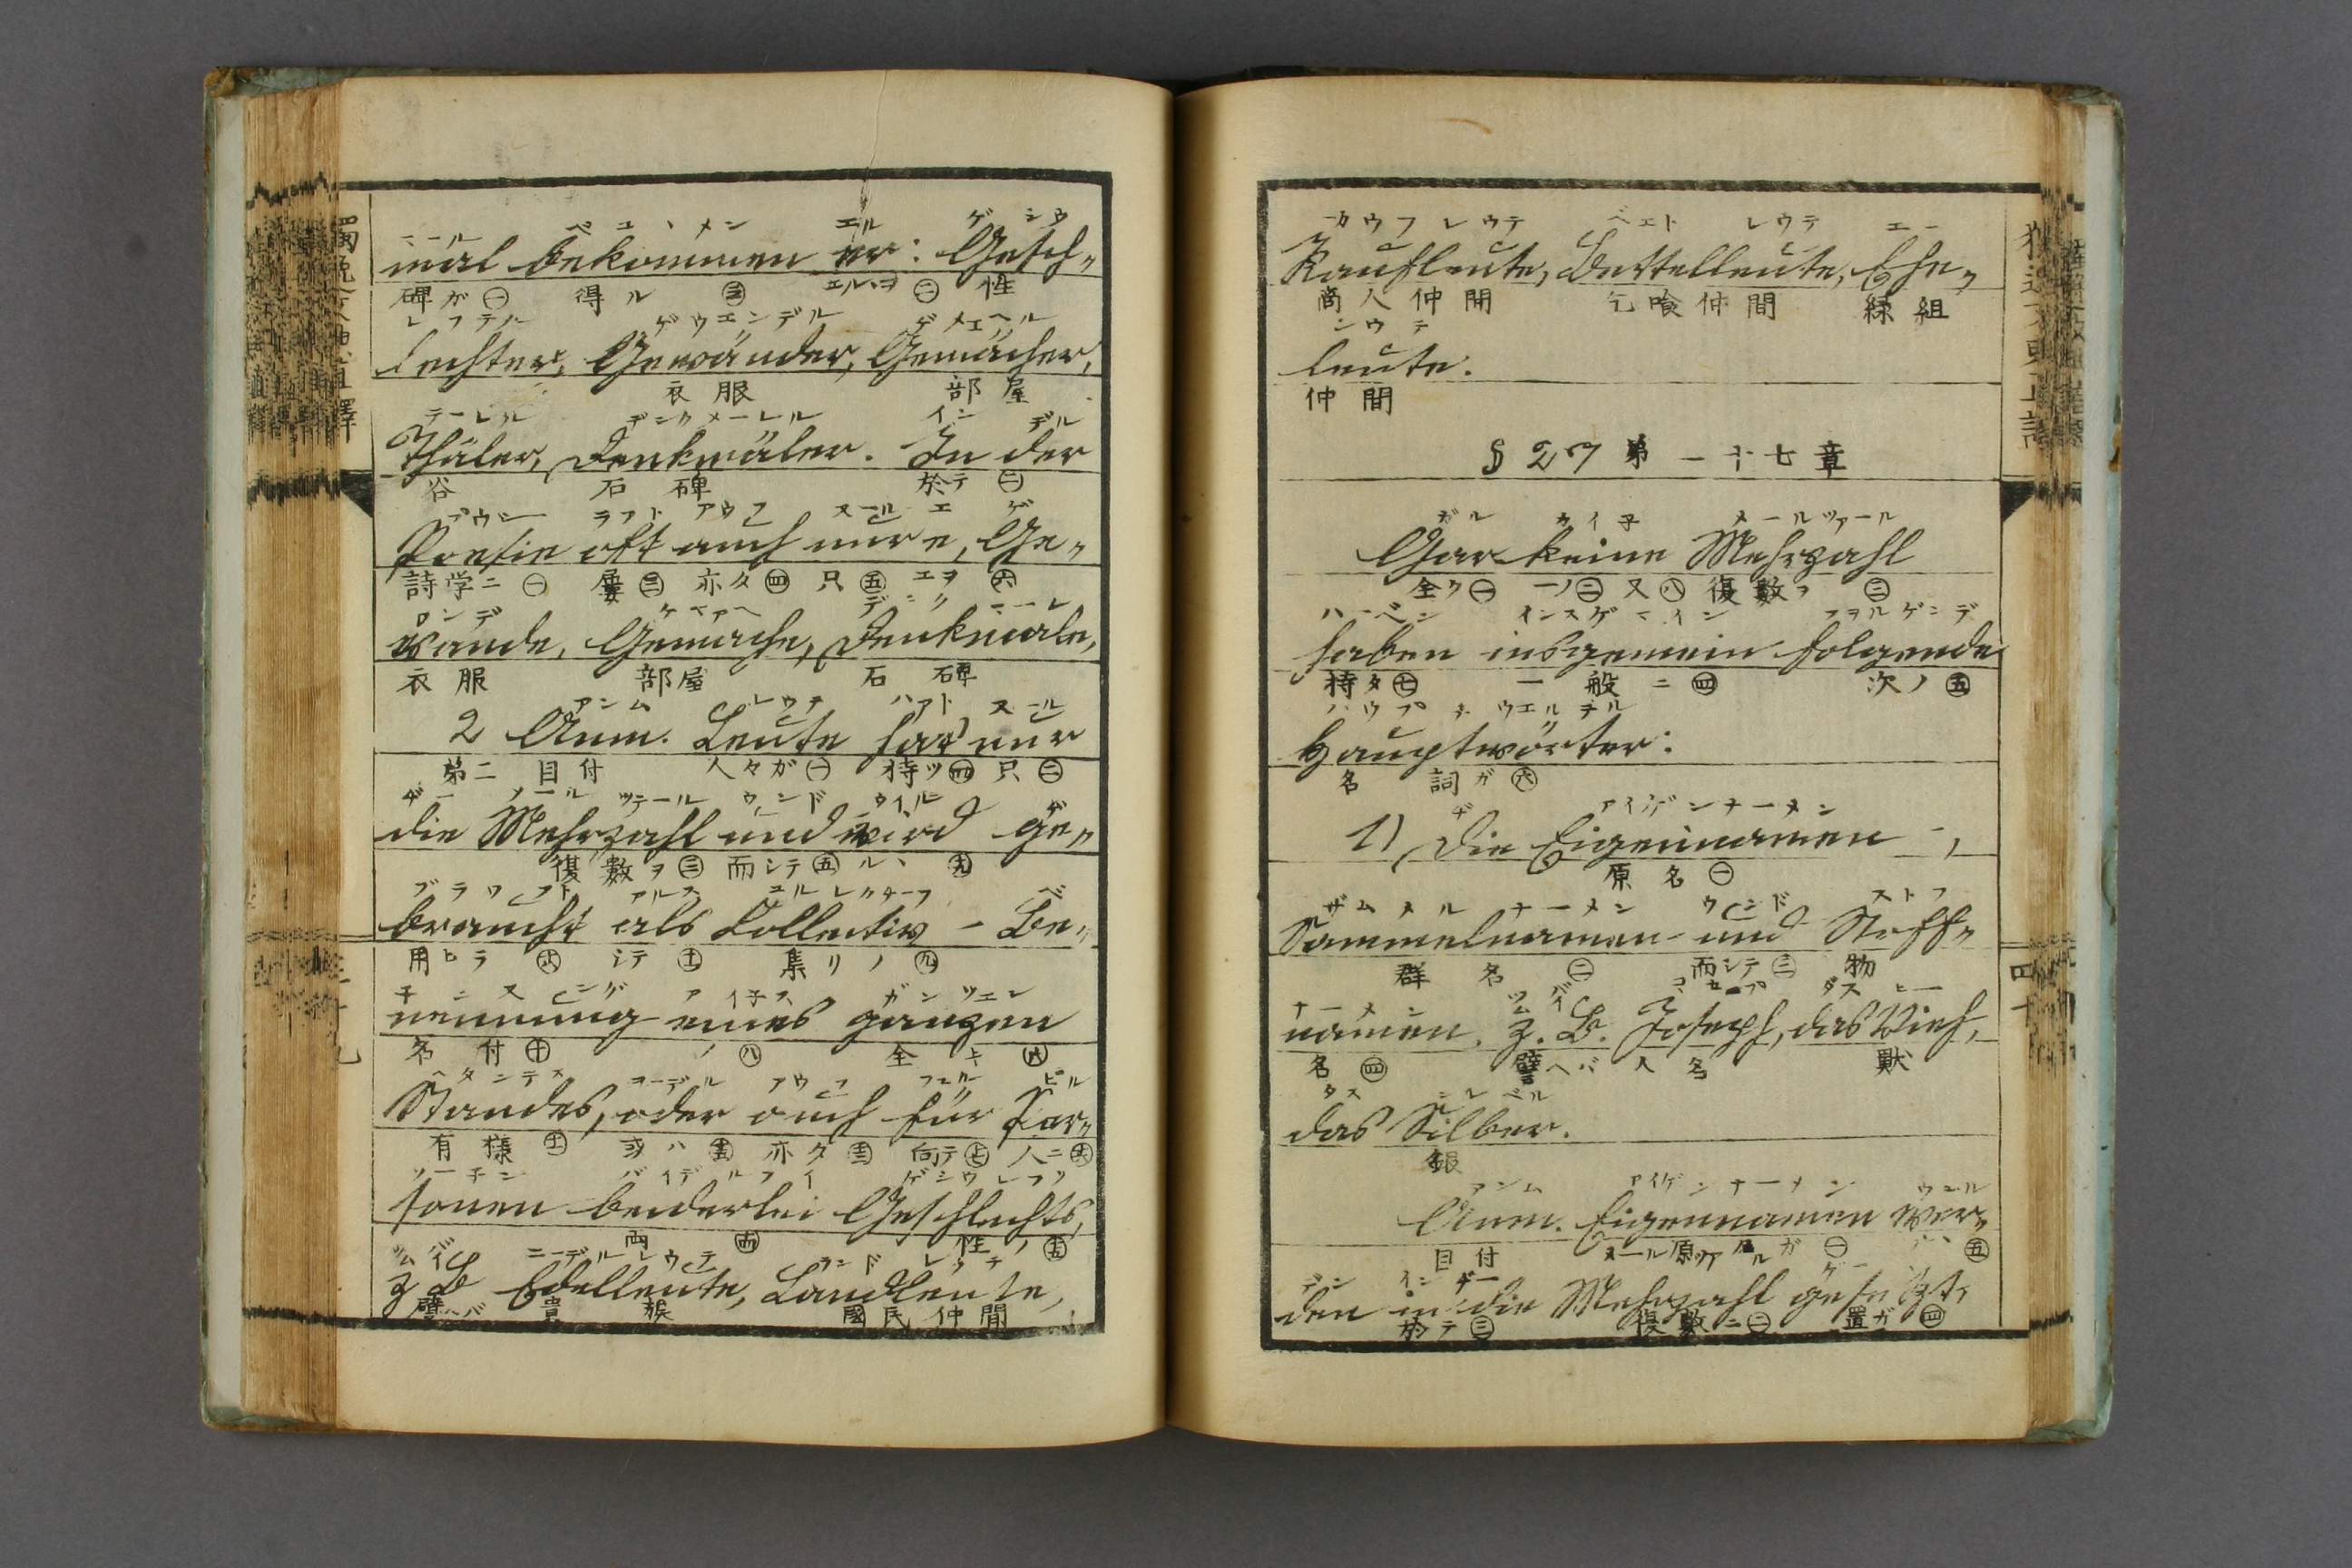 マール ベコヽメン エル ゲシウ
mal bekommen er: Gesch„
碑ガ㊀ 得ル㊂ エルヽヲ㊁ 性
レフテル ゲウエンデル ゲメエヘル
lechter, Gewänder, Gemächer,
衣服 部屋
テーレル デンクメーレル イン デル
Thäler, Denkmäler. In der
谷 石碑 於テ㊁
ラフト アウフ ヌール エ ゲ
Poesie oft auch nur e, Ge„
詩学ニ㊀ 屢㊂ 亦タ㊃ 只㊄ エヲ㊅
ワンデ ゲマアヘ デンクマーレ
wande, Gemache, Denkmale,
衣服 部屋 石碑
アンム レウテ ハアト ヌール
2 Anm. Leute hat nur
第二 目付 人々ガ㊀ 持ツ㊃ 只㊁
ヂー メール ツァール ウンド ウイルド ゲ
die Mehrzahl und wird ge„
復數ヲ㊂ 而シテ㊄ ルヽ
ブラウフト アルス コルレクチーフ ベ
braucht als Collectiv - Be„
用ヒラ シテ 集リノ㊈
子ンヌング アイ子ス ガンツエン
nennung eines ganzen
名付㊉ ノ㊇ 全キ㊅
スタンデス ヲーデル アウフ フユル ペル
Standes, oder auch für Per„
有様 或ハ 亦タ 向テ 人ニ
ソー子ン バイデルライ ゲシウレフツ
sonen beiderlei Geschlechts,
両 性ノ
ツム バイ エーデルレウテ ランドレウテ
z B Edelleute, Landleute,
譬ヘバ 貴族 國民仲間
カウフレウテ ベエトレウテ エー
Kaufleute, Bettelleute, Ehe„
商人仲間 乞喰仲間 縁組
レウテ
leute.
仲間
§ 27 第二十七章
ガル カイ子 メールツァール
Gar keine Mehrzahl
全ク㊀ 一ノ㊁ 又㊇ 復數ヲ㊂
ハーベン インスゲマイン フヲルゲンデ
haben insgemein folgende
持タ㊆ 一般ニ㊃ 次ノ㊄
ハウプトウエルテル
Hauptwörter:
名詞ガ㊅
ヂー アイゲンナーメン
1) Die Eigennamen -,
原名㊀
ザムメルナーメン ウンド ストフ
Sammelnamen- und Stoff„
群名㊁ 而シテ㊂ 物
ナーメン ツム バイ ヨセープ ダス ヒー
namen, z. B. Joseph, das Vieh,
名㊃ 譬ヘバ 人名 獸
ダス シルベル
das Silber.
銀
アンム アイゲンナーメン ウエル
Anm. Eigennamen wer„
目付 原名ガ㊀ ㊄
デン イン ヂー メールツァール ゲ
den in die Mehrzahl gesetzt,
於テ㊂ 復數ニ㊁ 置ガ㊃